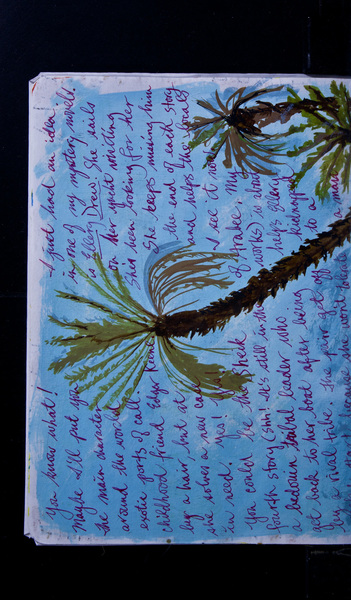 You know what! I just had an idea.
Maybe I'll put you in one of my mystery novels.
the main character is Ellery Drew. She sails
around the world on her yacht visiting
exotic ports of call. She's been looking for her
childhood friend Edgr Keene. She keeps missing him
by a hair but at the end of each story
she solves a new case and helps the locals
in need. Yes! I see it now.
You could be the Sheik of Arake! My
fourth story (shh! it's still in the works) is about
a bedouin tribal leader who helps Ellery
get back to her boat after being kidnapped
by a rival tribe. They get off to a
because she won't